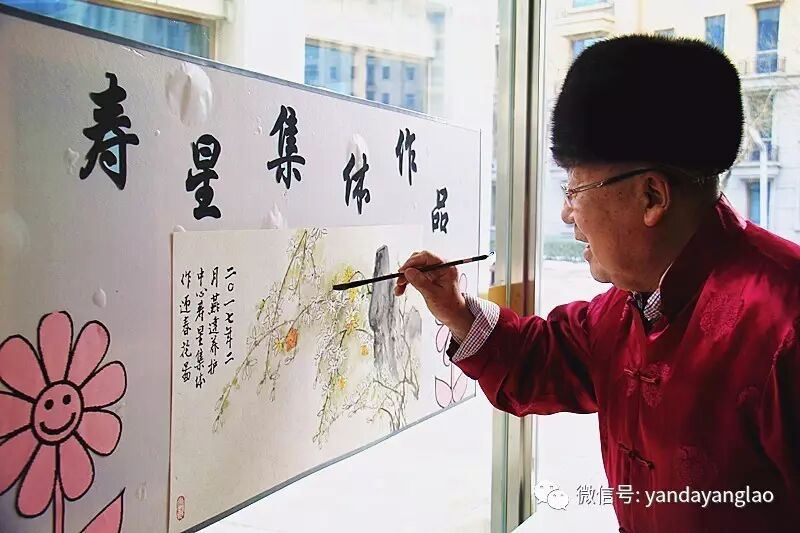 寿星集体作品
二〇一七年二
月燕达养护
中心寿星集体
作迎春花图
微信号: yandayanglao